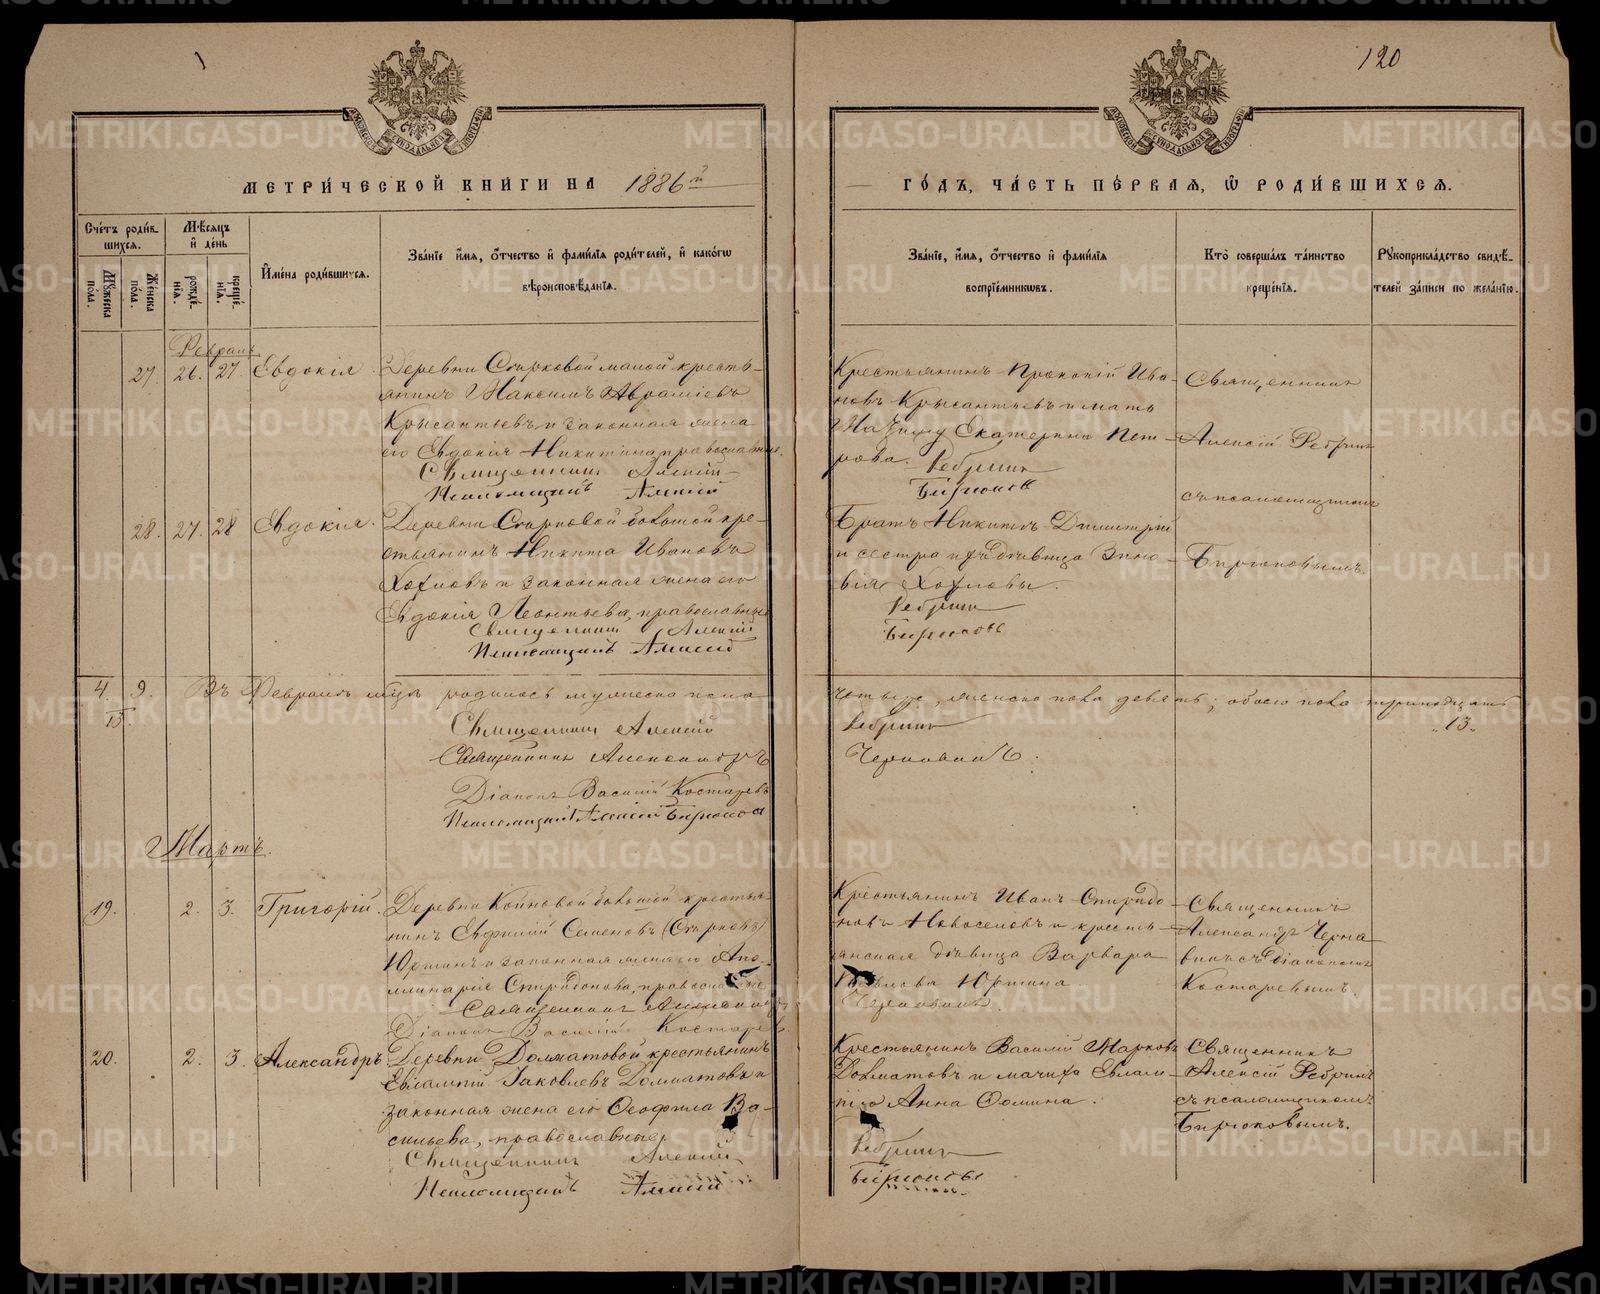 120
МЕТРИ́ЧЕСКОЙ КНИ́ГИ НА 1886й
ГО́ДЪ, ЧА́СТЬ ПЕ́РВАЯ, Ѡ РОДИ́ВШИХСЯ.
Сче́тъ роди́в-
шихся.
Му́жеска по́ла.
Же́нска по́ла.
Мѣ́сяцъ
и де́нь
рожде́-
нія.
креще́-
нія.
Имена роди́вшихся.
Зва́ніе и́мя, о́тчество и фами́лія роди́телей, и како́гѡ
вѣроисповѣ́данія.
Зва́ніе, и́мя, о́тчество и фами́лія
воспріе́мниковъ.
Кто̀ соверша́лъ та́инство
креще́нія.
Рукоприкла́дство свидѣ́-
телей за́писи по жела́нію.
Февраль
27. 26. 27. Евдокія.
Деревни Старковой малой кресть-
янинъ Максимъ Авраміевъ
Крысантьевъ и законная жена
его Евдокія Никитина, православные.
Священникъ Алексій
Псаломщикъ Алексій
Крестьянинъ Прокопій Ива-
новъ Крысантьевъ и мать
Екатерина Пет-
рова.
Ребринъ
Бирюковъ
Священникъ
Алексій Ребринъ
съ псаломщикомъ
28. 27. 28 Евдокія.
Деревни Старковой большой кре-
стьянинъ Никита Ивановъ
Хохловъ и законная жена его
Евдокія Леонтьева, православные
Священникъ Алексій
Псаломщикъ Алексій
Братъ Никиты Димитрій
и сестра ихъ дѣвица Зино-
вія Хохловы.
Ребринъ
Бирюковъ
Бирюковымъ.
4. 9. Въ Февралѣ мцѣ родилось мужеска пола
четыре, женска пола девять; обоего пола тринадцать
13.
„13„
Священникъ Алексій
Ребринъ
Священникъ Александръ
Чернавинъ.
Діаконъ Василій Костаревъ
Псаломщикъ Алексій Бирюковъ
Мартъ.
19. 2. 3. Григорій.
Деревни Койновой большой крестья-
нинъ Евфимій Семеновъ (Старковъ)
Юртинъ и законная жена его Апо-
линарія Спиридонова, православные.
Священникъ Александръ
Діаконъ Василій Костаревъ
Крестьянинъ Иванъ Спиридо-
новъ Новоселовъ и кресть-
янская дѣвица Варвара
Юртина.
Чернавинъ.
Священникъ
Александръ Черна-
винъ съ діакономъ
Костаревымъ.
20. 2. 3. Александръ.
Деревни Долматовой крестьянинъ
Евлампій Іаковлевъ Долматовъ и
законная жена его Ѳеофила Ва-
сильева, православные.
Священникъ Алексій
Псаломщикъ Алексій
Крестьянинъ Василій Марковъ
Долматовъ и мачиха Евлам-
пія Анна Ѳомина.
Ребринъ
Бирюковъ
Священникъ
Алексій Ребринъ
съ псаломщикомъ
Бирюковымъ.
METRIKI.GASO-URAL.RU